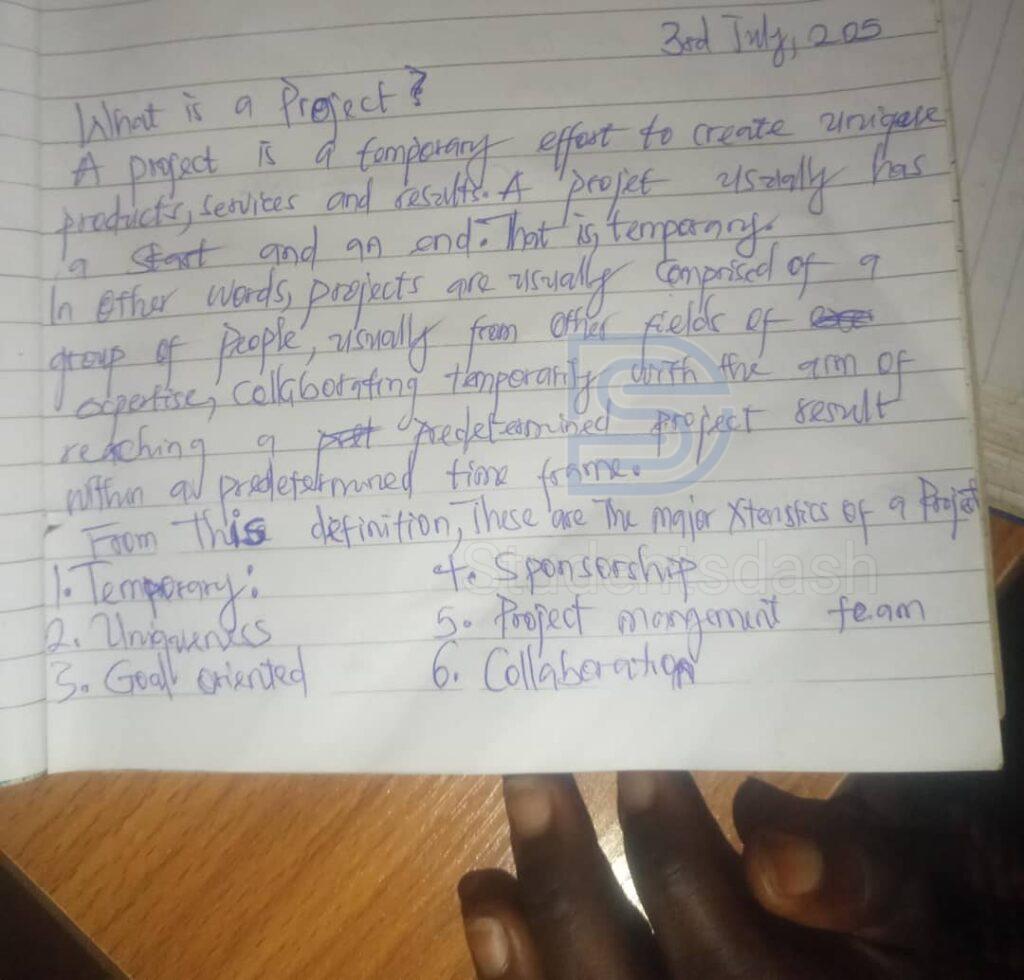 3rd July, 205
What is a Project?
A project is a temporary effort to create unique
products, services and results. A projet usually has
a start and an end. That is, temporary.
In Other words, projects are usually comprised of a
group of people, usually from other fields of
expertise, collaborating temporarily with the aim of
reaching a predetermined project result
within a predetermined time frame.
From this definition, These are The major Xteristics of a Project
1. Temporary:
4. Sponsorship
2. Uniqueness
5. Project mangement team
3. Goal oriented
6. Collaboration
Studentsdash